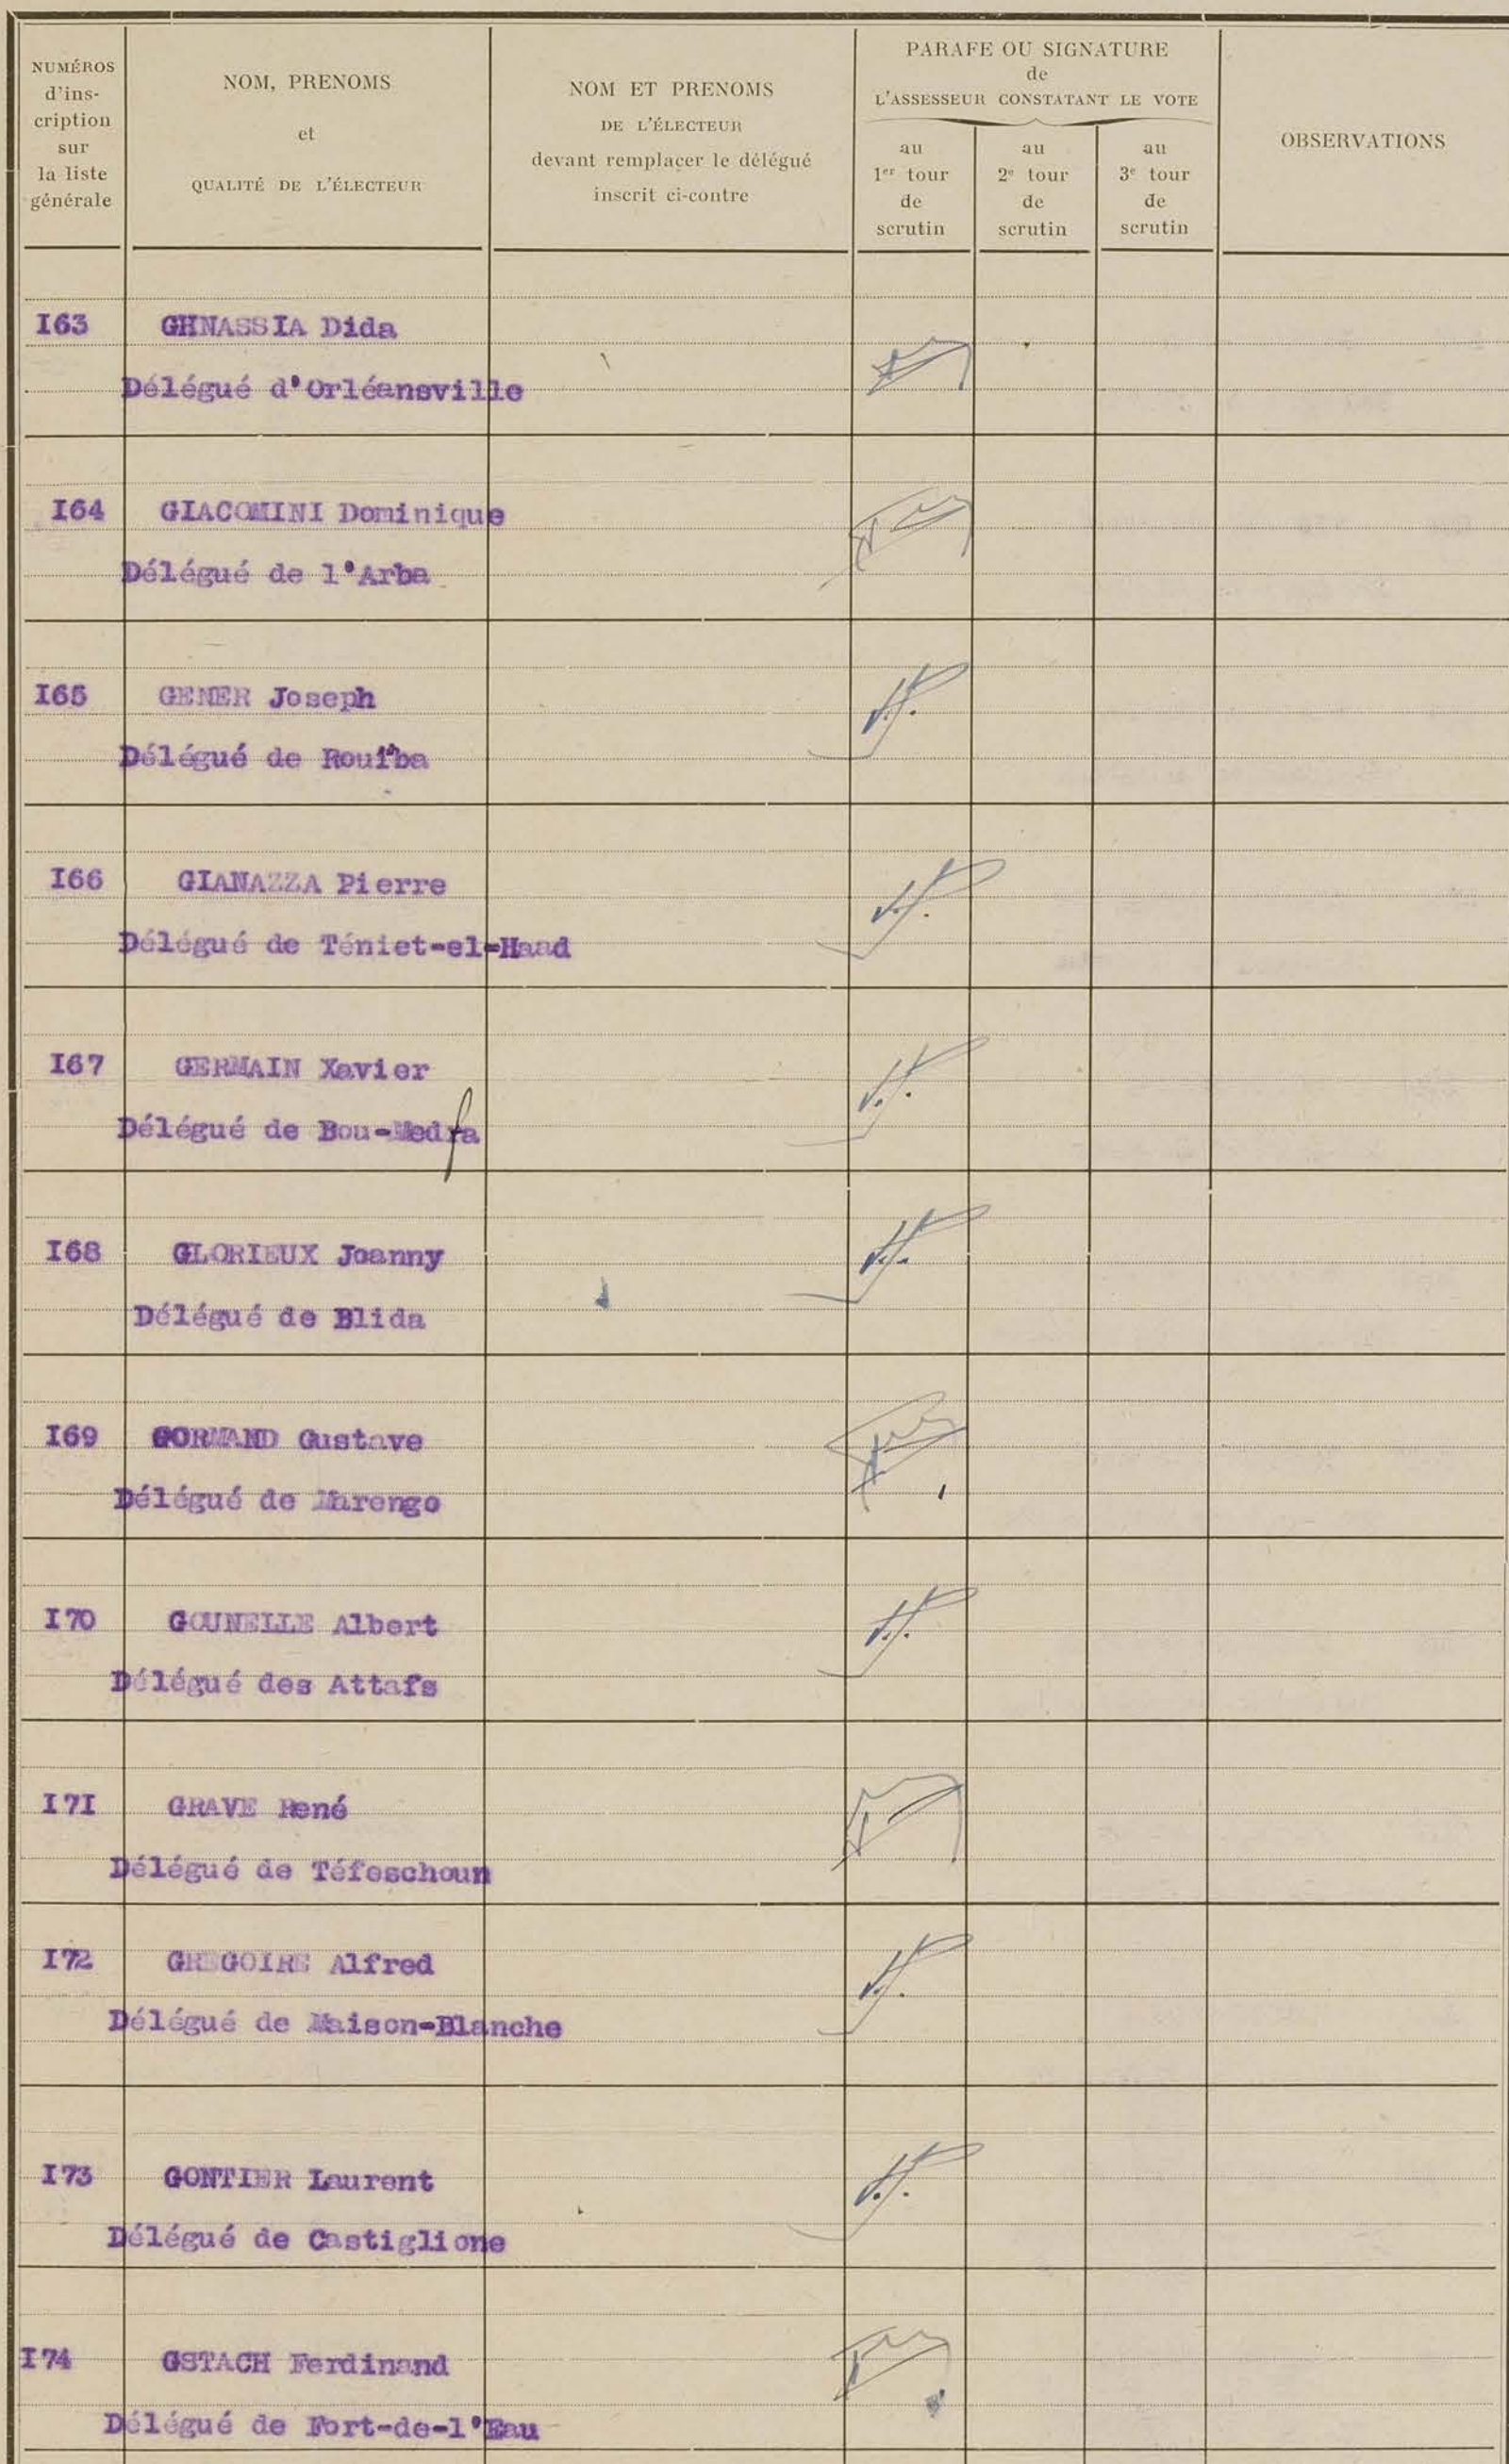 NUMÉROS
d'ins-
cription
sur
la liste
générale
NOM, PRENOMS
et
QUALITÉ DE L'ÉLECTEUR
NOM ET PRENOMS
DE L'ÉLECTEUR
devant remplacer le délégué
inscrit ci-contre
PARAFE OU SIGNATURE
de
L'ASSESSEUR CONSTATANT LE VOTE
au
1er tour
de
scrutin
au
2e tour
de
scrutin
au
3e tour
de
scrutin
OBSERVATIONS
I63 GHNASSIA Dida
Délégué d'Orléansville
I64 GIACOMINI Dominique
Délégué de l'Arba
I65 GENER Joseph
Délégué de Rouïba
I66 GIANAZZA Pierre
Délégué de Téniet-el-Haad
I67 GERMAIN Xavier
Délégué de Bou-Medfa
I68 GLORIEUX Joanny
Délégué de Blida
I69 GORMAND Gustave
Délégué de Marengo
I70 GOUNELLE Albert
Délégué des Attafs
I7I GRAVE René
Délégué de Téfeschoun
I72 GREGOIRE Alfred
Délégué de Maison-Blanche
I73 GONTIER Laurent
Délégué de Castiglione
I74 GSTACH Ferdinand
Délégué de Fort-de-l'Eau